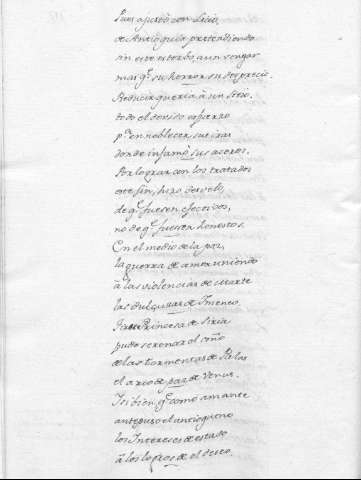 Pues ajustó con Sirio,
de Antioquia pretendiendo
sin este estorbo, aun vengar
mas q.e su horror, su desprecio.
Reducir queria à un
todo el devido esfuerzo
p.a en noblecer sus iras
donde infamò sus aceros.
Por lograr con los tratados
este fin, hizo desvelo,
de q.e fuesen efectivos,
no de q.e fuesen honestos.
En el medio de la paz,
la guerra de amor uniendo
à las violencias de Marte
las dulzuras de Imeneo.
Princesa de Siria
pudo serenar el ceño
de las tormentas de Palas
el arco de paz de Venus.
I si bien, q.e como amante
antepuso el antiogueno
los Intereses de estado
à los logros de el deseo.